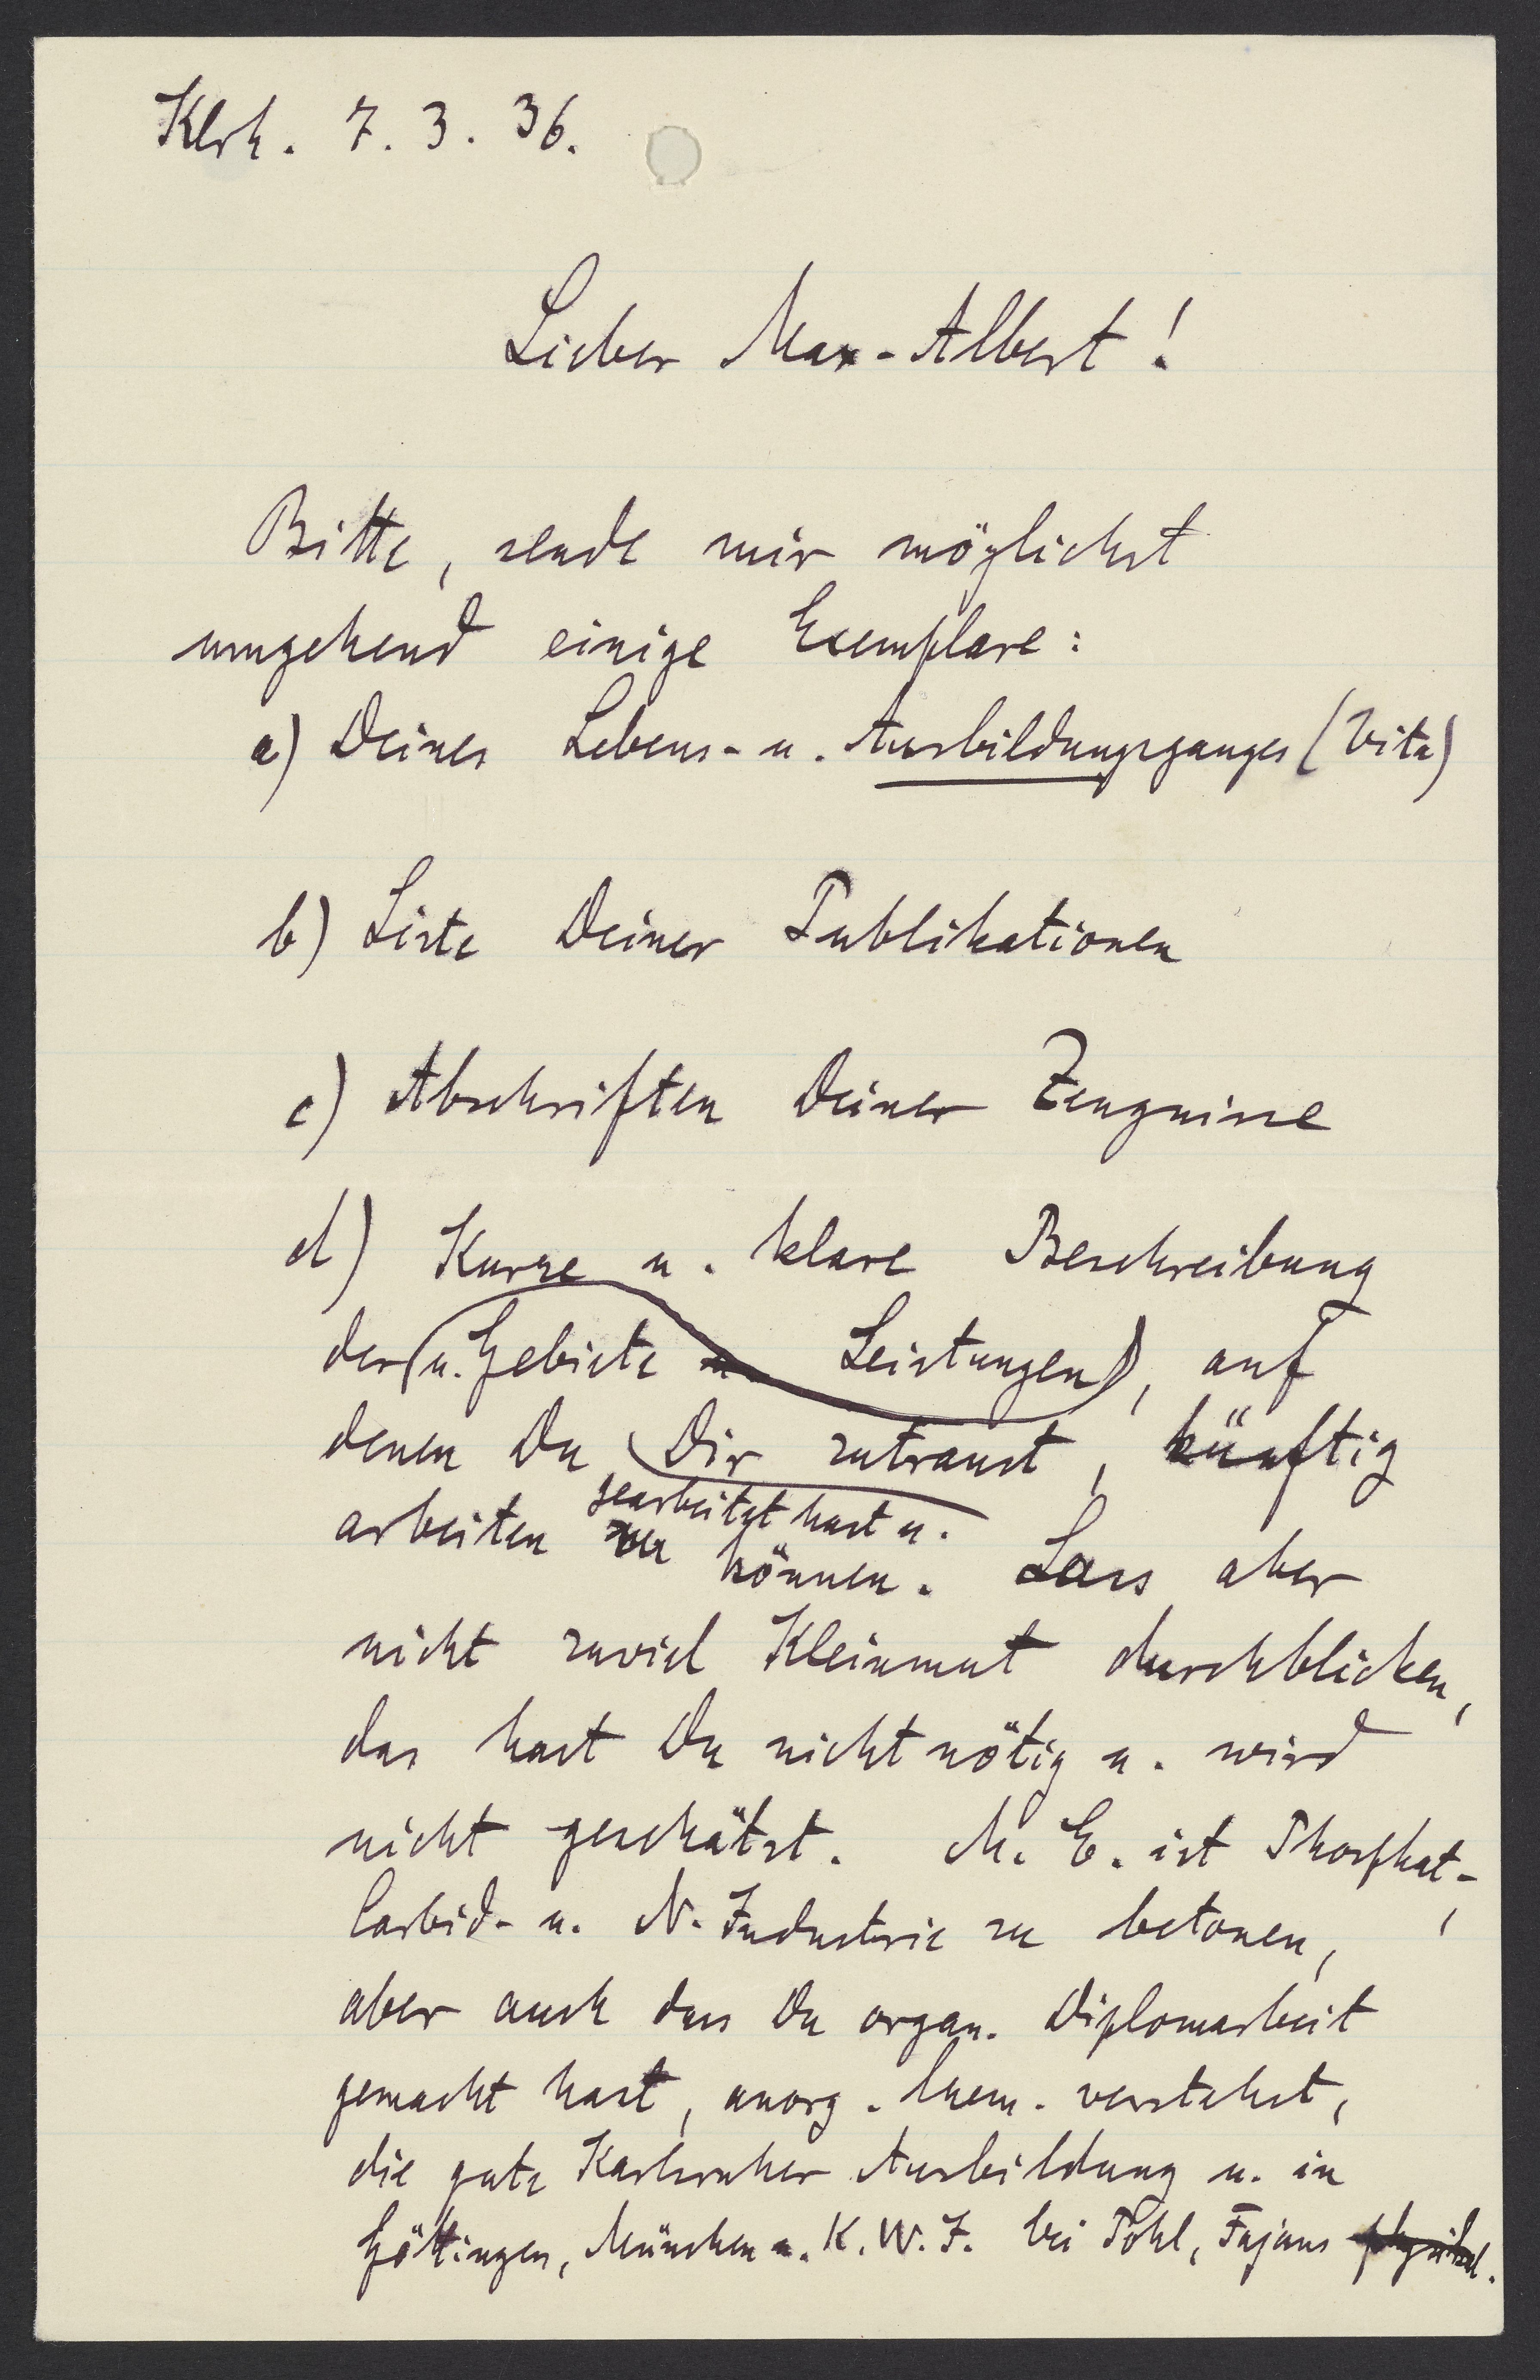 Klrh. 7. 3. 36.
Lieber Max-Albert!
Bitte, sende mir möglichst
umgehend einige Exemplare:
a) Deines Lebens- u. Ausbildungsganges (Vita)
b) Liste Deiner Publikationen
c) Abschriften Deiner Zeugnisse
d) Kurze u. klare Beschreibung
der (u. Gebiete u. Leistungen), auf
denen Du Dir zutraust, künftig
gearbeitet hast u.
arbeiten zu können. Lass aber
nicht zuviel Kleinmut durchblicken,
das hast Du nicht nötig u. wird
nicht geschätzt. M. E. ist Phosphat-,
Carbid- u. N-Industrie zu betonen,
aber auch dass Du organ. Diplomarbeit
gemacht hast, anorg. Chem. verstehst,
die gute Karlsruher Ausbildung u. in
Göttingen, München u. K. W. I. bei Pohl, Fajans physikal.